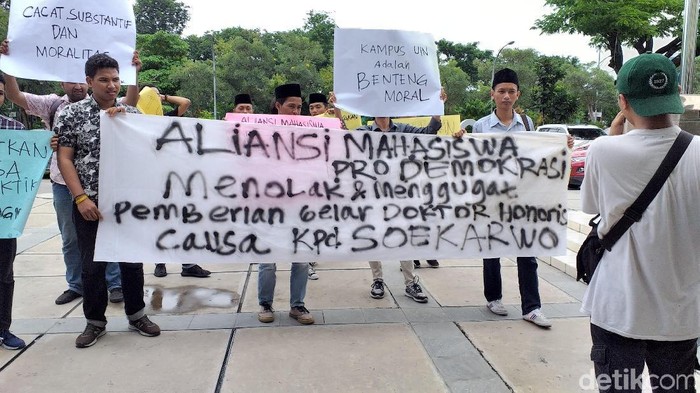 CACAT SUBSTANTIF
DAN
MORALITAS
KAMPUS UIN
Adalah
BENTENG
MORAL
ALIANSI MAHASISWA
ALIANSI MAHASISWA
PRO DEMOKRASI
Menolak & menggugat
Pemberian Gelar DOKTOR Honoris
Causa Kpd SOEKARWO
detikcom